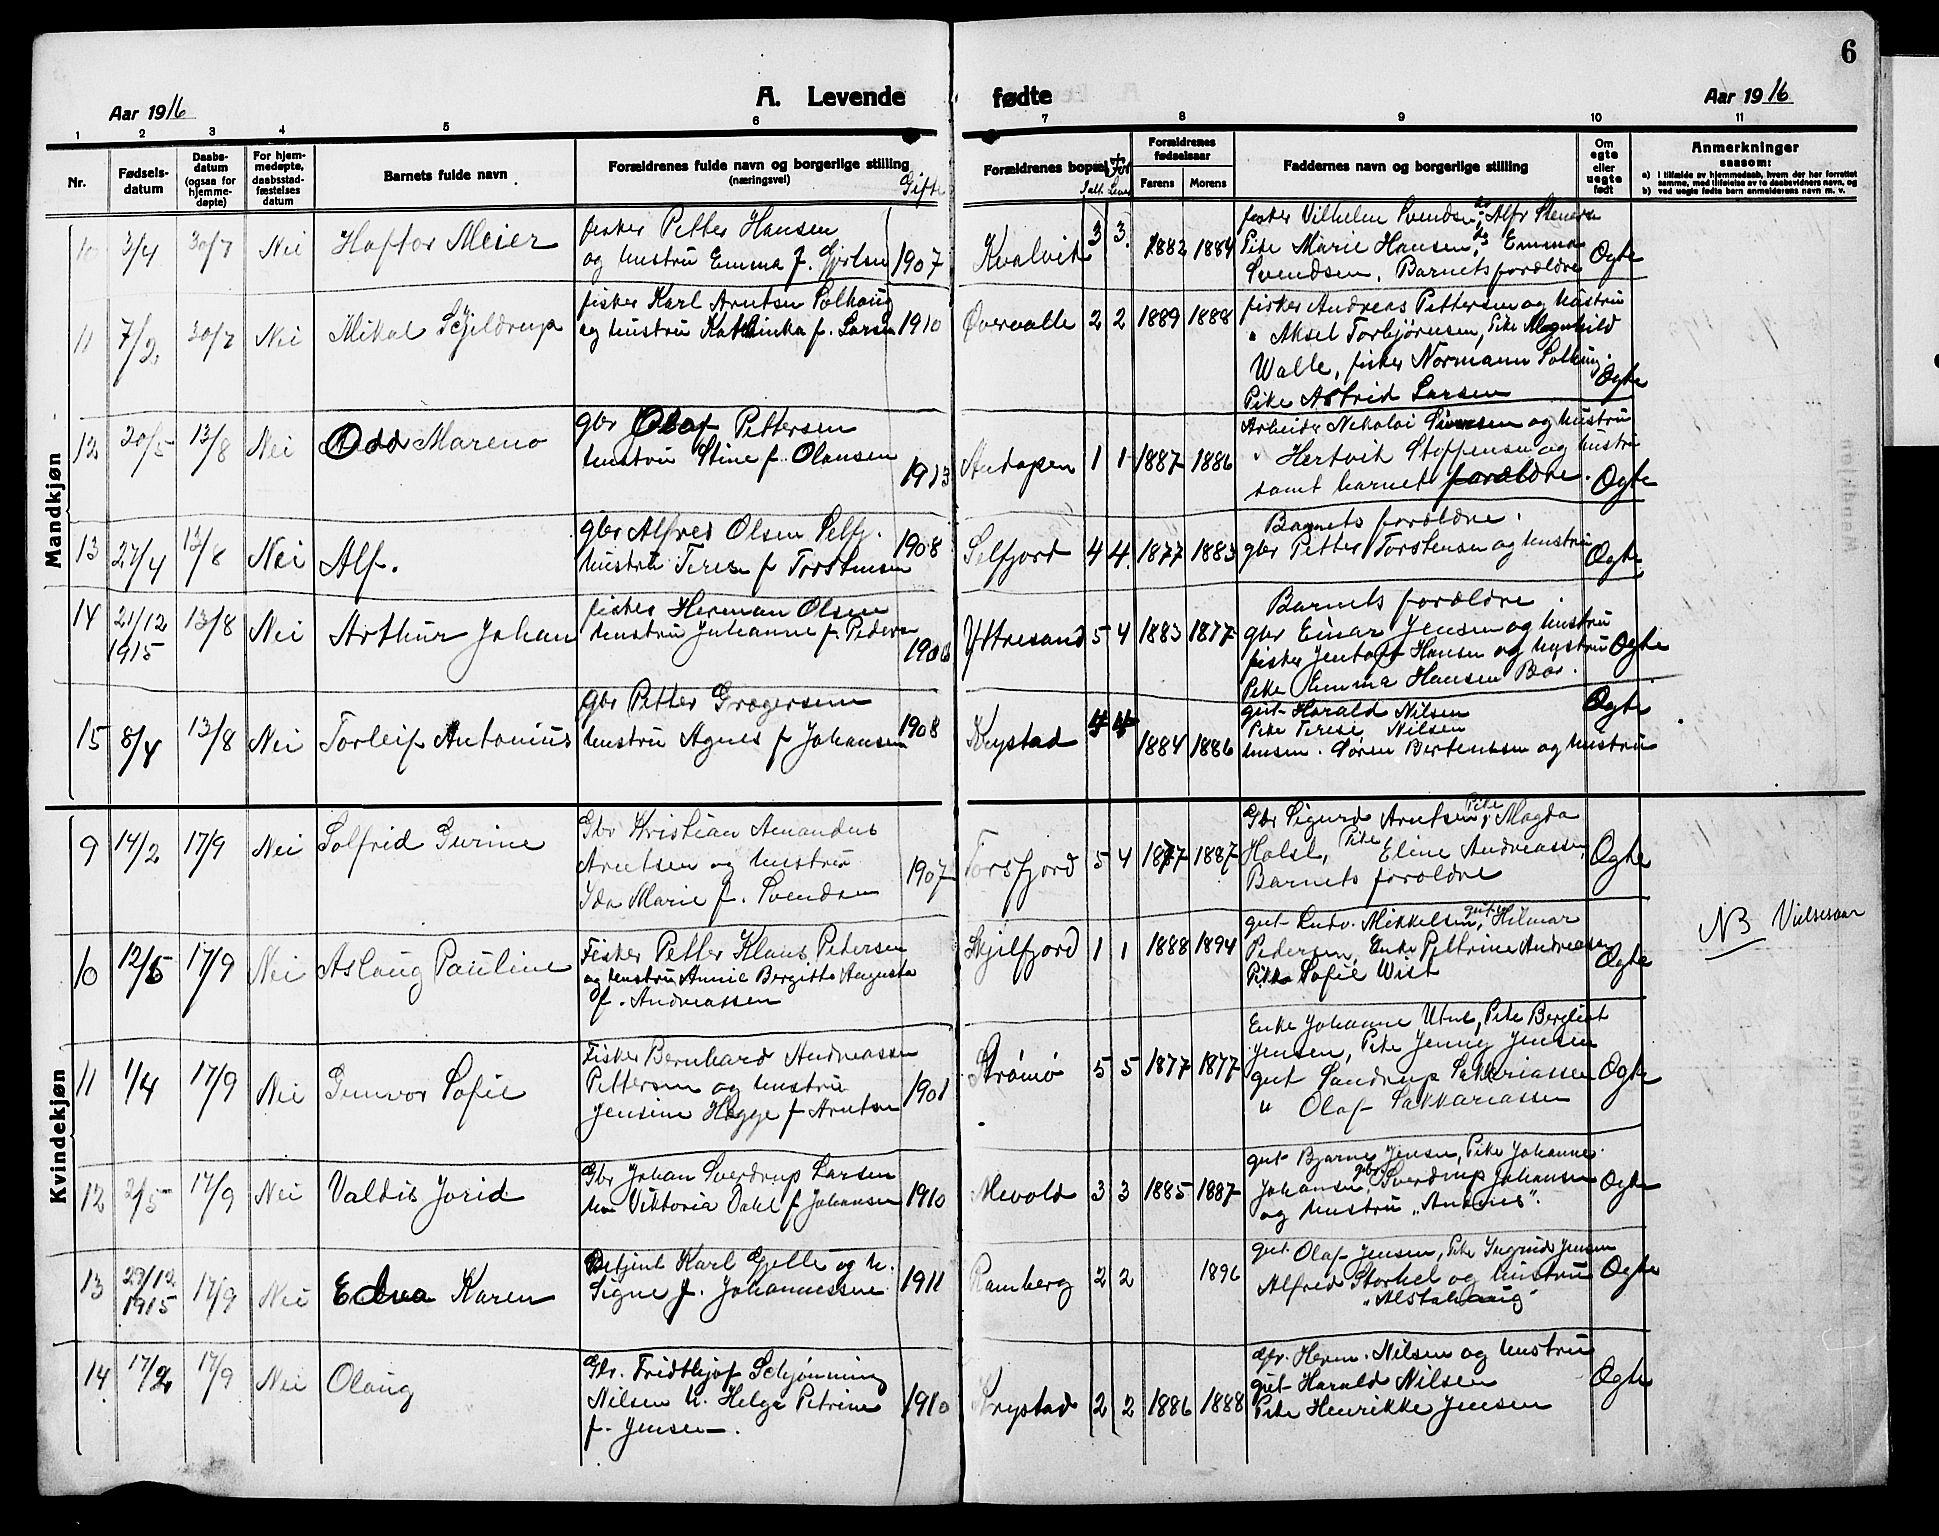 6
Aar 1916
A. Levende
fødte
Aar 1916
1 2 3 4 5 6 7 8 9 10 11
Nr.
Fødsels-
datum
Daabs-
datum
(ogsaa for
hjemme-
døpte)
For hjem-
medøpte,
daabsstad-
fæstelses
datum
Barnets fulde navn
Forældrenes fulde navn og borgerlige stilling
(næringsvei)
Gifte
Forældrenes bopæl
Forældrenes
fødselsaar
Farens
Morens
Faddernes navn og borgerlige stilling
Om
egte
eller
uegte
født
Anmerkninger
saasom:
a) i tilfælde av hjemmedaab, hvem der har forrettet
samme, med tilføielse av to daabsvidners navn, og
b) ved uegte fødte børn anmelderens navn m. v.
Mandkjøn
10 3/4 30/7 Nei Haftor Meier
fisker Petter Hansen
og hustru Emma f. 1907
Kvalvik 3 3. 1882 1884
fisker Vilhelm Svendsen, do Alfr Stenersen
Pike Marie Hansen, do Emma
Svendsen. Barnets forældre
Ogte
11 7/2 30/7 Nei Mikal Schjeldrup
fisker Karl Arntsen Solhaug
og hustru Kathinka f. Larsen 1910
Øvervalle 2 2 1889 1888
fisker Andreas Pettersen og hustru
" Aksel Torbjørnsen, Pike Magnhild
Walle, fisker Normann Solhaug.
Pike Astrid Larsen
Ogte
12 20/5 13/8 Nei Odd Mareno
gbr Olaf Pettersen
hustru Stine f. Olausen 1913
Andopen 1 1 1887 1886
Arbeider Nikolai Simonsen og hustru
" Hertvik Stoffensen og hustru
samt barnets forældre.
Ogte
13 27/4 13/8 Nei Alf.
gbr Alfred Olsen Selfj.
hustru Terese f Torstensen 1908
Selfjord 4 4. 1877 1883
Barnets forældre.
gbr Petter Torstensen og hustru
Ogte
14 21/12 1915 13/8 Nei Arthur Johan
fisker Herman Olsen
hustru Johanne f. Pedersen
Yttresand 5 4 1883 1877
Barnets forældre.
gbr Einar Jensen og hustru
fisker Jentoft Hansen og hustru
Pike Emma Hansen Bær.
Ogte
15 8/4 13/8 Nei Torleif Antonius
gbr Petter Grægersen
hustru Agnes f Johansen 1908
Krystad 4 4 1884 1886
gut Harald Nilsen
Pike Terese Nilsen
husm. Søren Berteussen og hustru
Ogte
Kvindekjøn
9 14/2 17/9 Nei Solfrid Gurine
Gbr Kristian Amandus
Arntsen og hustru
Ida Marie f. Svendsen 1907
Torsfjord 5 4 1877 1887
Gbr Sigurd Arntsen, Pike Magda
Holst, Pike Eline Andreassen,
Barnets forældre
Ogte
10 12/5 17/9 Nei Aslaug Pauline
Fisker Petter Klaus Pedersen
og hustru Annie Bergitte Augusta
f. Andreassen
Skjelfjord 1 1 1888 1894
gut Ludv. Mikkelsen, gut Hilmar
Pedersen, Enke Pettrine Andreassen
Pike Sofie Wist
Ogte
NB Vielsesaar
11 1/4 17/9 Nei Gunvor Sofie
Fisker Bernhard Andreassen
Pettersen og hustru
Jensine Hegge f Arntsen 1901
Strømø 5 5 1877 1877
Enke Johanne Utne, Pike Bergliot
Jensen, Pike Jenny Jensen
gut Sandrup Sakkariassen
" Olaf Sakkariassen
Ogte
12 2/5 17/9 Nei Valdis Jorid
Gbr Johan Sverdrup Larsen
hu Viktoria Dahl f Johansen 1910
Mevold 3 3 1885 1887
gut Bjarne Jensen, Pike Johanne
Johansen, gbr Sverdrup Johansen
og hustru "Andnes".
Ogte
13 29/12 1915 17/9 Nei Edva Karen
Betjent Karl Gjelle og h.
Signe f. Johannessen 1911
Ramberg 2 2 1896
gut Olaf Jensen, Pike Ingrid Jensen
Alfred Storhel og hustru
"Alstahaug"
Ogte
14 17/2 17/9 Nei Olaug
Gbr. Fridthjof Schjønning
Nilsen h. Helga Petrine
f. Jensen. 1910
Krystad 2 2 1886 1888
Gbr. Herm. Nilsen og hustru
gut Harald Nilsen
Pike Henrikke Jensen
Ogte